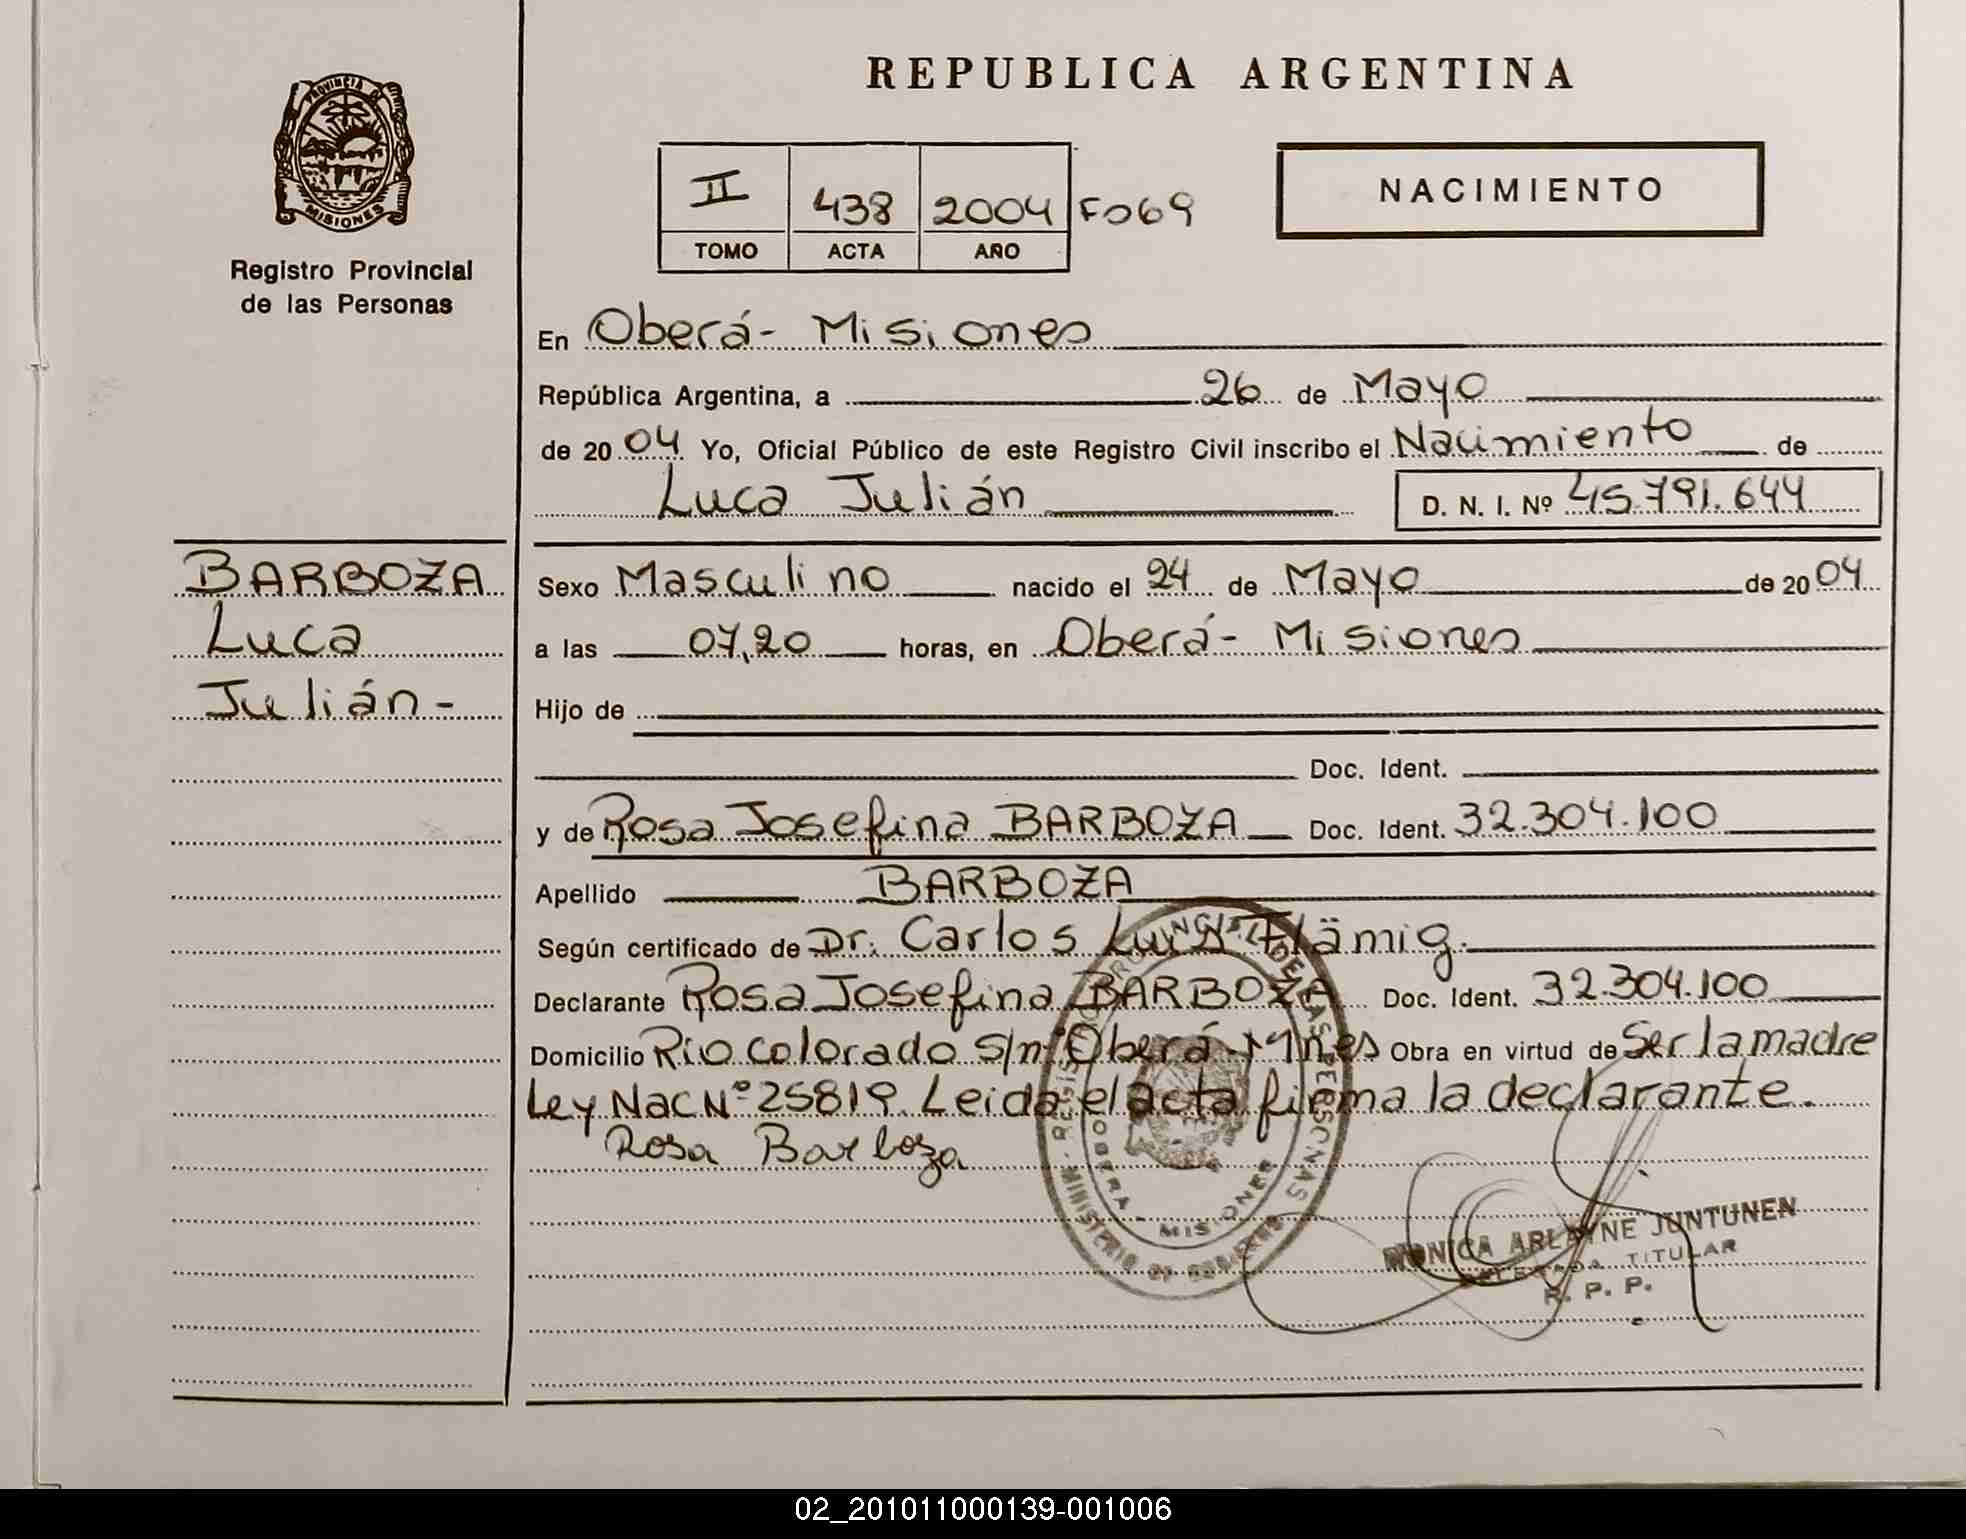 REPUBLICA ARGENTINA
PROVINCIA DE
MISIONES
Registro Provincial
de las Personas
II 438 2004 F069
TOMO ACTA AÑO
NACIMIENTO
En Oberá - Misiones
República Argentina, a 26 de Mayo
de 2004 Yo, Oficial Público de este Registro Civil inscribo el Nacimiento de
Luca Julián D. N. I. Nº 45.791.644
BARBOZA
Luca
Julián -
Sexo Masculino nacido el 24 de Mayo de 2004
a las 07,20 horas, en Oberá - Misiones
Hijo de
Doc. Ident.
y de Rosa Josefina BARBOZA Doc. Ident. 32.304.100
Apellido BARBOZA
Según certificado de Dr. Carlos Luis Flämig.
Declarante Rosa Josefina BARBOZA Doc. Ident. 32.304.100
Domicilio Rio Colorado s/nº Oberá - Mnes Obra en virtud de Ser la madre
Ley Nac Nº 25819. Leida el acta firma la declarante.
Rosa Barboza
REGISTRO PROVINCIAL DE LAS PERSONAS
- MINISTERIO DE GOBIERNO
OBERA - MISIONES
MONICA ARLAYNE JUNTUNEN
DELEGADA TITULAR
R. P. P.
02_201011000139-001006